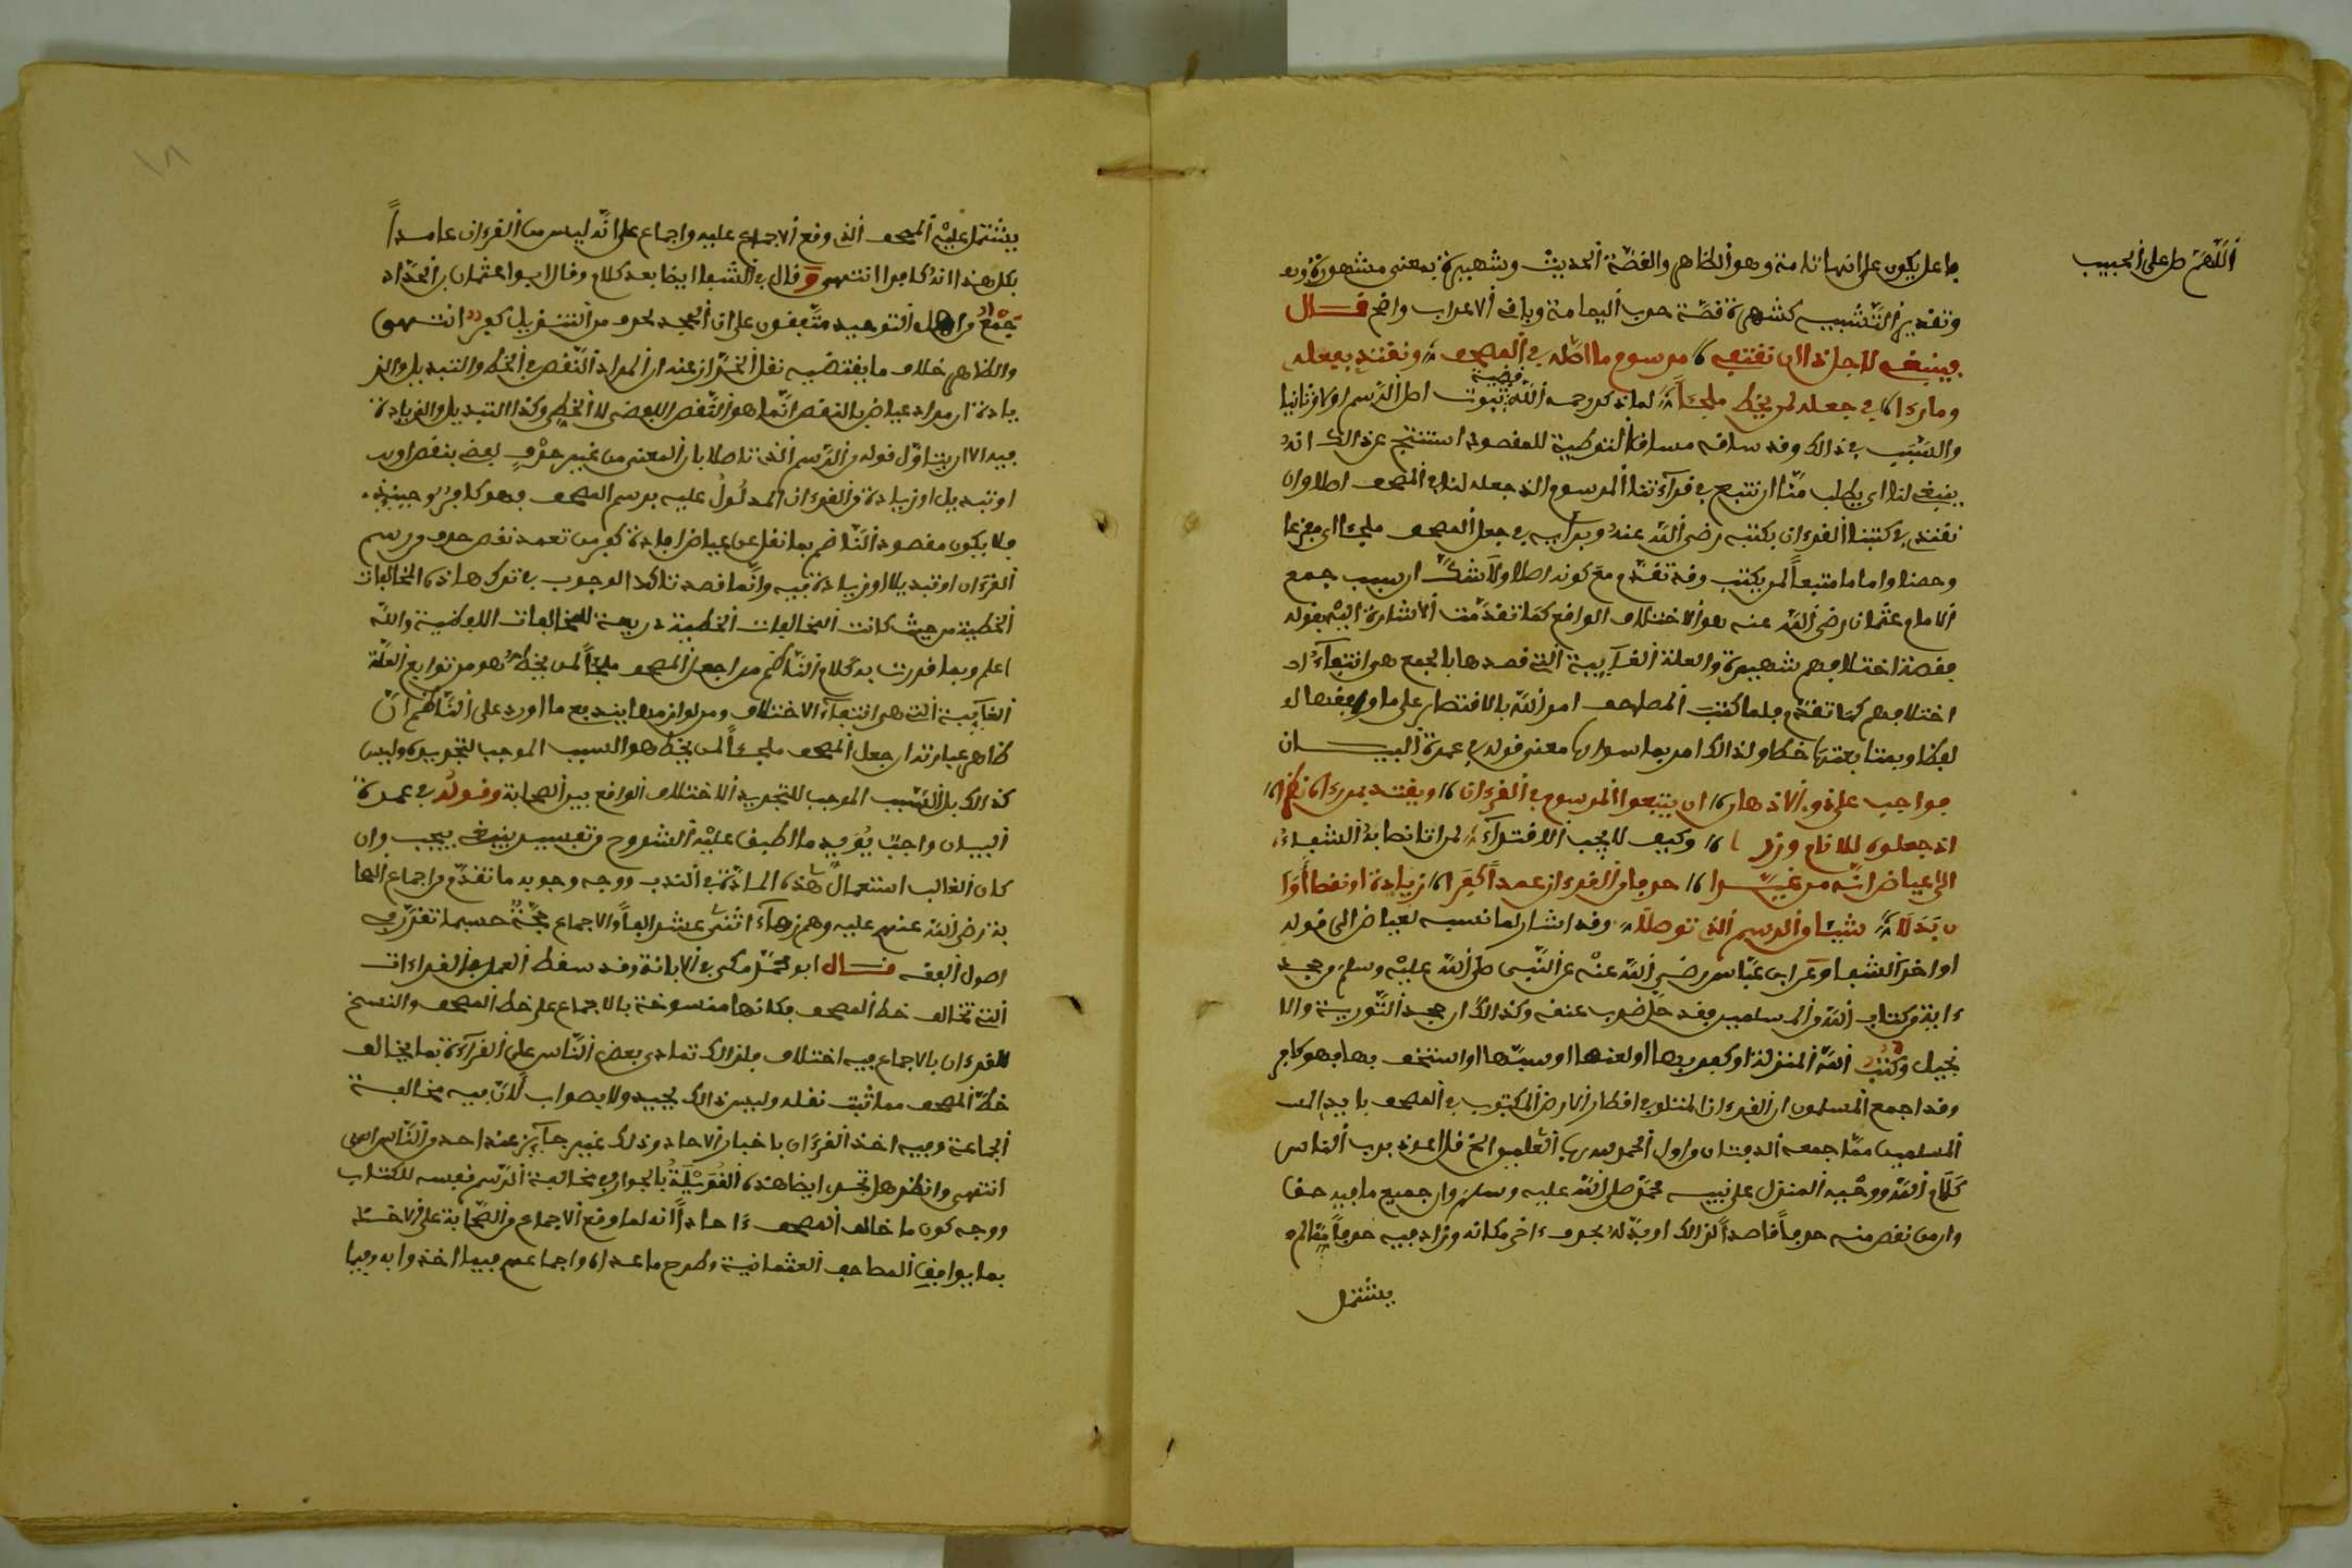 اللهم صل على الحبيب
فاعل يكون على انها تامة وهو الظاهر والقصة الحديث وشهيرة بمعنى مشهورة و
وتقدير التشبيه كشهرة قصة حرب اليمامة وباقي الاعراب واضح قال
فينبغي لاجل ذا ان نقتفي مرسوم ما اصله في المصحف ونقتدي بفعله
وما رءا في جعله لمن يخط ملجئا لما ذكر رحمه الله قضية ثبوت اصل الرسم اولا وثانيا
والسبب في ذالك وقد ساقه مساق التوطية للمقصود استنتج عن ذالك انه
ينبغي لنا اي يطلب منا ان نتبع في قرآءتنا المرسوم الذي جعله لنا في المصحف اصلا وان
نقتدي في كتبنا القرءان بكتبه رضي الله عنه وبرأيه في جعل المصحف ملجئا اي مفزعا
وحصنا واماما متبعا لمن يكتب وقد تقدم مع كونه اصلا ولا شك ان سبب جمع
الامام عثمان رضي الله عنه هو الاختلاف الواقع كما تقدمت الاشارة اليه بقوله
فقصة اختلافهم شهيرة والعلة الغآيية التي قصدها بالجمع هي انتفآء
اختلافهم كما تقدم فلما كتبت المصاحف امر الله بالاقتصار على ما وافقها
لفظا وبمتابعتها خطا ولذالك امر بما سواها معنى قوله في عمدة البيان
فواجب على ذوي الاذهان ان يتبعوا المرسوم في القرءان ويقتدي بمن رءاه نظرا
اذ جعلوه للانام وزرا وكيف لا يجب الاقتدآء لما اتى نصا به الشفآء
الى عياض انه من غيرا حرفا من القرءان عمدا كفرا زيادة او نقصا او ا
ن بدلا شيئا من الرسم الذي تاصلا وقد اشار لما نسبه لعياض الى قوله
اواخر الشفا وعن ابن عباس رضي الله عنه عن النبي صلى الله عليه وسلم من جحد
ءاية من كتاب الله من المسلمين فقد حل ضرب عنقه وكذالك ان جحد التورية والا
نجيل وكتب الله المنزلة او كفر بها او لعنها او سبها او استخف بها فهو كافر
وقد اجمع المسلمون ان القرءان المتلو في اقطار الارض المكتوب في المصحف بايدي
المسلمين مما جمعه الدفتان من اول الحمد لله رب العلمين الى قل اعوذ برب الناس
كلام الله ووحيه المنزل على نبيه محمد صلى الله عليه وسلم وان جميع ما فيه حق
وان من نقص منه حرفا قاصدا لذالك او بدله بحرف ءاخر مكانه وزاد فيه حرفا مما لم
يشتمل
يشتمل عليه المصحف الذي وقع الاجماع عليه واجماع على انه ليس من القرءان عامدا
بكل هذا انه كافر انتهى وقال في الشفا ايضا بعد كلام وقال ابو عثمان بن الحداد
جميع من اهل التوحيد متفقون على ان الجحد لحرف من التنزيل كفر انتهى
والظاهر خلاف ما يقتضيه نقل الخراز عنه ان المراد النقص في الخط والتبديل والز
يادة ان مراد عياض بالنقص انما هو النقص اللفظي لا الخطي وكذا التبديل والزيادة
فيه الا ان يتاول قوله من الرسم الذي تاصلا بان المعنى من غير حرف لفظي بنقص او
او تبديل او زيادة من القرءان المدلول عليه برسم المصحف فهو كافر وحينئذ
فلا يكون مقصود الناظم بما نقل عن عياض افادة كفر من تعمد نقص حرف من رسم
القرءان او تبديلا او زيادة فيه وانما قصد تاكد الوجوب في ترك هاذه المخالفات
الخطية من حيث كانت المخالفات الخطية ذريعة للمخالفات اللفظية والله
اعلم وبما قررت به كلام الناظم من ان جعل المصحف ملجئا لمن يخط هو من توابع العلة
الغآيية التي هي انتفآء الاختلاف ومن لوازمها يندفع ما اورد على الناظم ان
ظاهر عبارته ان جعل المصحف ملجئا لمن يخط هو السبب الموجب لتجريده وليس
كذالك بل السبب الموجب للتجريد الاختلاف الواقع بين الصحابة وقوله في عمدة
البيان واجب يؤيد ما اطبق عليه الشروح من تفسير ينبغي بيجب وان
كان الغالب استعمال هذه المادة في الندب ووجه وجوبه ما تقدم من اجماع الصحا
بة رضي الله عنهم عليه وهم زهآء اثني عشر الفا والاجماع حجة حسبما تقرر في
اصول الفقه قال ابو محمد مكي في الابانة وقد سقط العمل بالقراءات
التي تخالف خط المصحف فكانها منسوخة بالاجماع على خط المصحف والنسخ
للقرءان بالاجماع فيه اختلاف فلذالك تمادى بعض الناس على القرآءة بما يخالف
خط المصحف مما ثبت نقله وليس ذالك بجيد ولا بصواب لان فيه مخالفة
الجماعة وفيه اخذ القرءان باخبار الاحاد وذلك غير جآئز عند احد من الناس
انتهى وانظر هل تجري ايضا هذه القويلة بالجواز في مخالفة الرسم نفسه للكتاب
ووجه كون ما خالف المصحف ءاحادا انه لما وقع الاجماع من الصحابة على الاخذ
بما يوافق المصاحف العثمانية وطرح ما عداه واجماعهم فيما اخذوا به وفيما